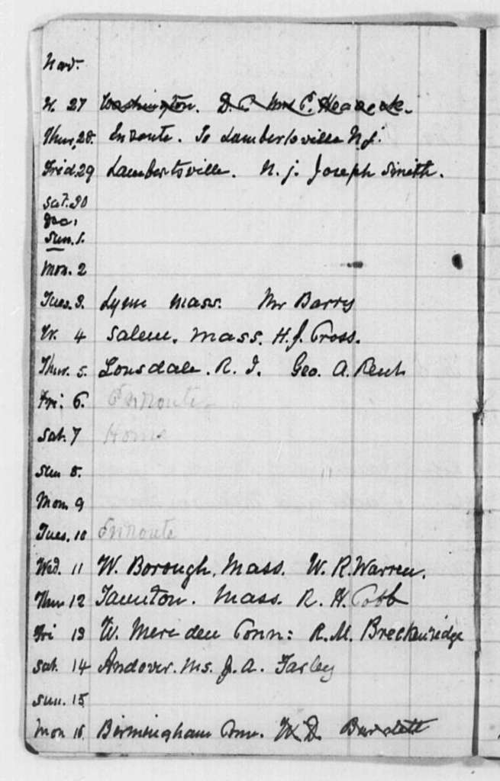 Nov.
W. 27 Washington. D.C. Wm P. Heacock.
Thur. 28. Enroute. To Lambertsville N.J.
Frid. 29 Lambertsville. N.J. Joseph Smith.
Sat. 30
Dec.
Sun. 1.
Mon. 2
Tues. 3. Lynn Mass. Mr Barry
W. 4 Salem. Mass. H.J. Cross.
Thur. 5. Lonsdale. R.I. Geo. A.
Fri. 6. Enroute
Sat. 7 Home
Sun 8.
Mon. 9
Tues. 10 Enroute
Wed. 11 W. Borough. Mass. W.R. Warren.
Thur 12 Taunton. Mass. R. H. Cobb
Fri 13 W. Meriden Conn: R.M. Breckenridge
Sat. 14 Andover. Ms. J.A. Farley
Sun. 15
Mon 16. Birmingham Conn. W.D. Burdett